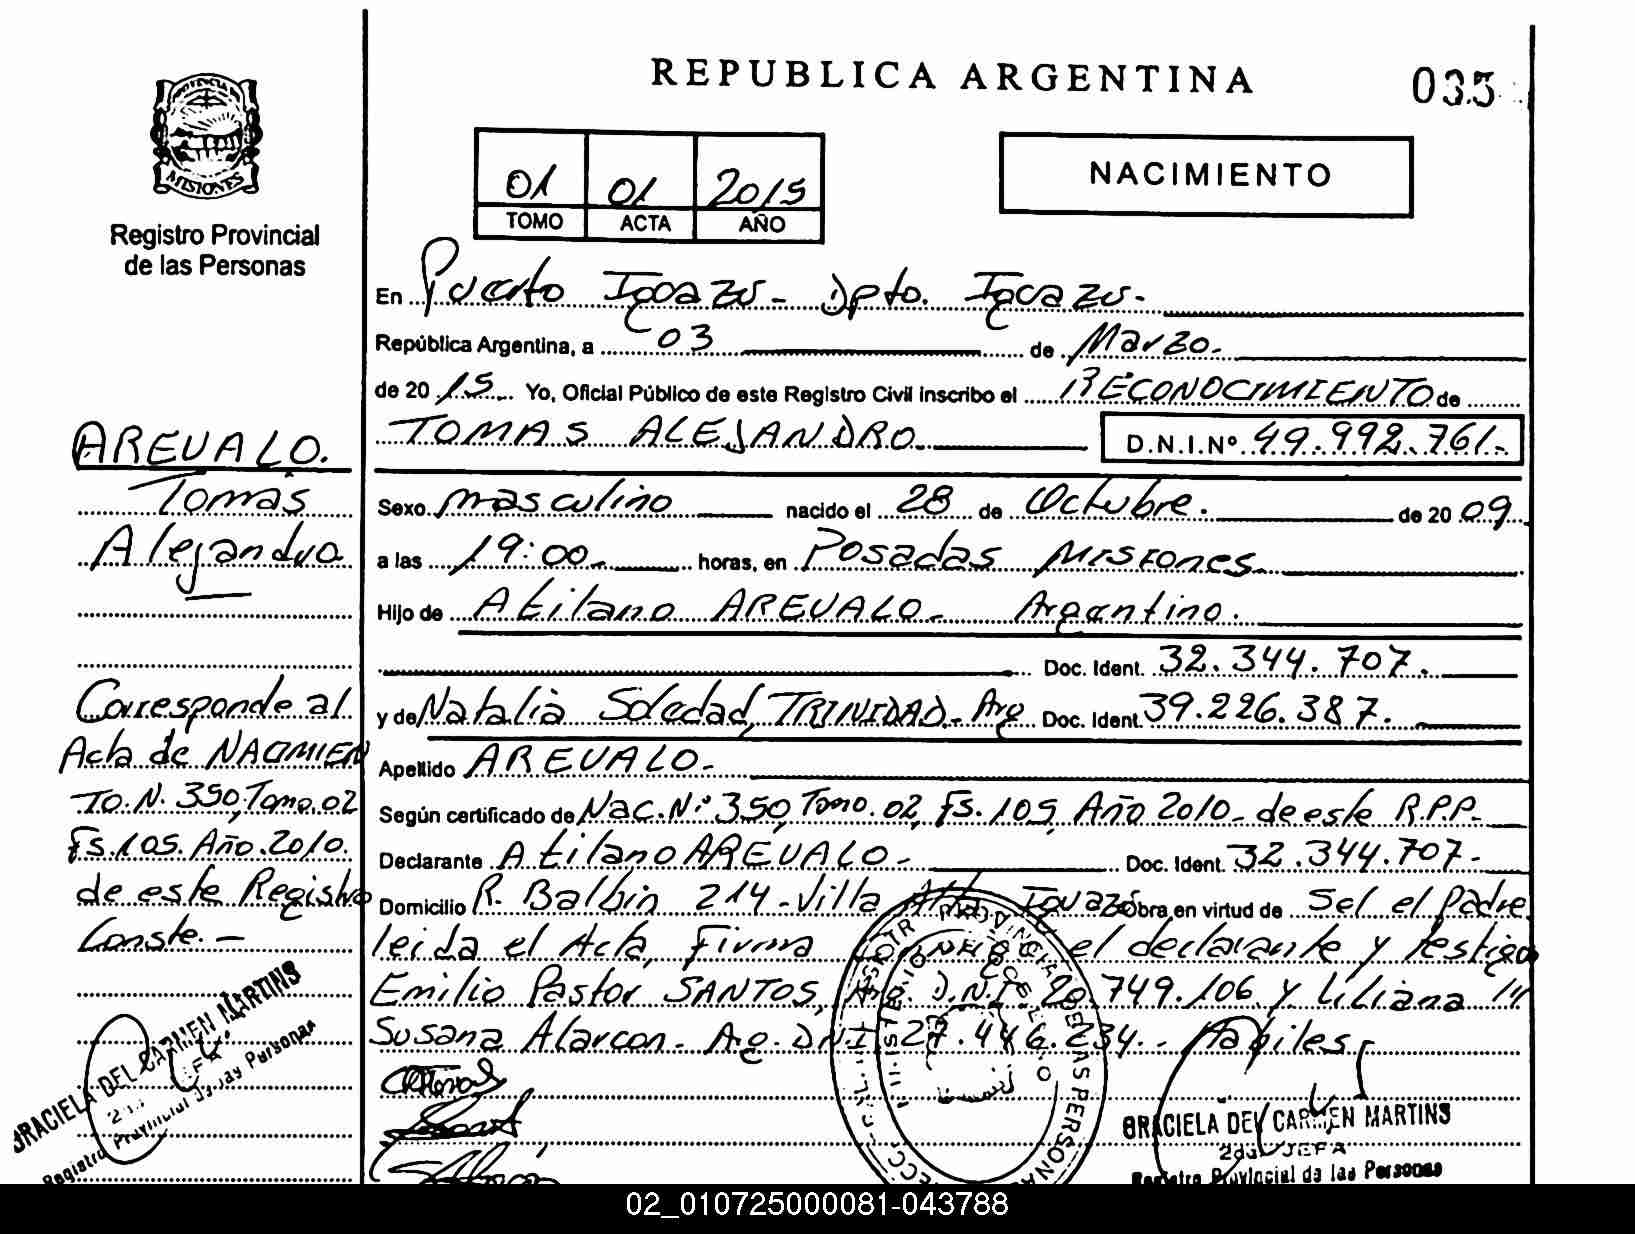 REPUBLICA ARGENTINA
035
PROVINCIA DE
MISIONES
Registro Provincial
de las Personas
01 01 2015
TOMO ACTA AÑO
NACIMIENTO
En Puerto Iguazu - Dpto. Iguazu-
República Argentina, a 03 de Marzo.
de 2015 Yo, Oficial Público de este Registro Civil inscribo el RECONOCIMIENTO de
TOMAS ALEJANDRO D.N.I.Nº 49.992.761.-
Sexo masculino nacido el 28 de Octubre. de 2009
a las 19:00.- horas, en Posadas Misiones.
Hijo de Atilano AREVALO- Argentino.
Doc. Ident. 32.344.707.
y de Natalia Soledad TRINIDAD- Arg Doc. Ident. 39.226.387.
Apellido AREVALO-
Según certificado de Nac. Nº 350, Tomo. 02, Fs. 105, Año 2010- de este R.P.P.
Declarante Atilano AREVALO- Doc. Ident. 32.344.707-
Domicilio R. Balbin 214- Villa Alta Iguazú Obra en virtud de Ser el Padre
leida el Acta, Firma conmigo el declarante y testigos
Emilio Pastor SANTOS, Arg. D.N.I. 20.749.106 y Liliana
Susana Alarcon- Arg. DNI 27.446.234.- Habiles
GRACIELA DEL CARMEN MARTINS
2da JEFA
Registro Provincial de las Personas
AREVALO.
Tomás
Alejandro
Corresponde al
Acta de NACIMIEN
TO. N. 350, Tomo. 02
Fs. 105. Año. 2010.
de este Registro
Conste.-
GRACIELA DEL CARMEN MARTINS
Registro Provincial de las Personas
02_010725000081-043788